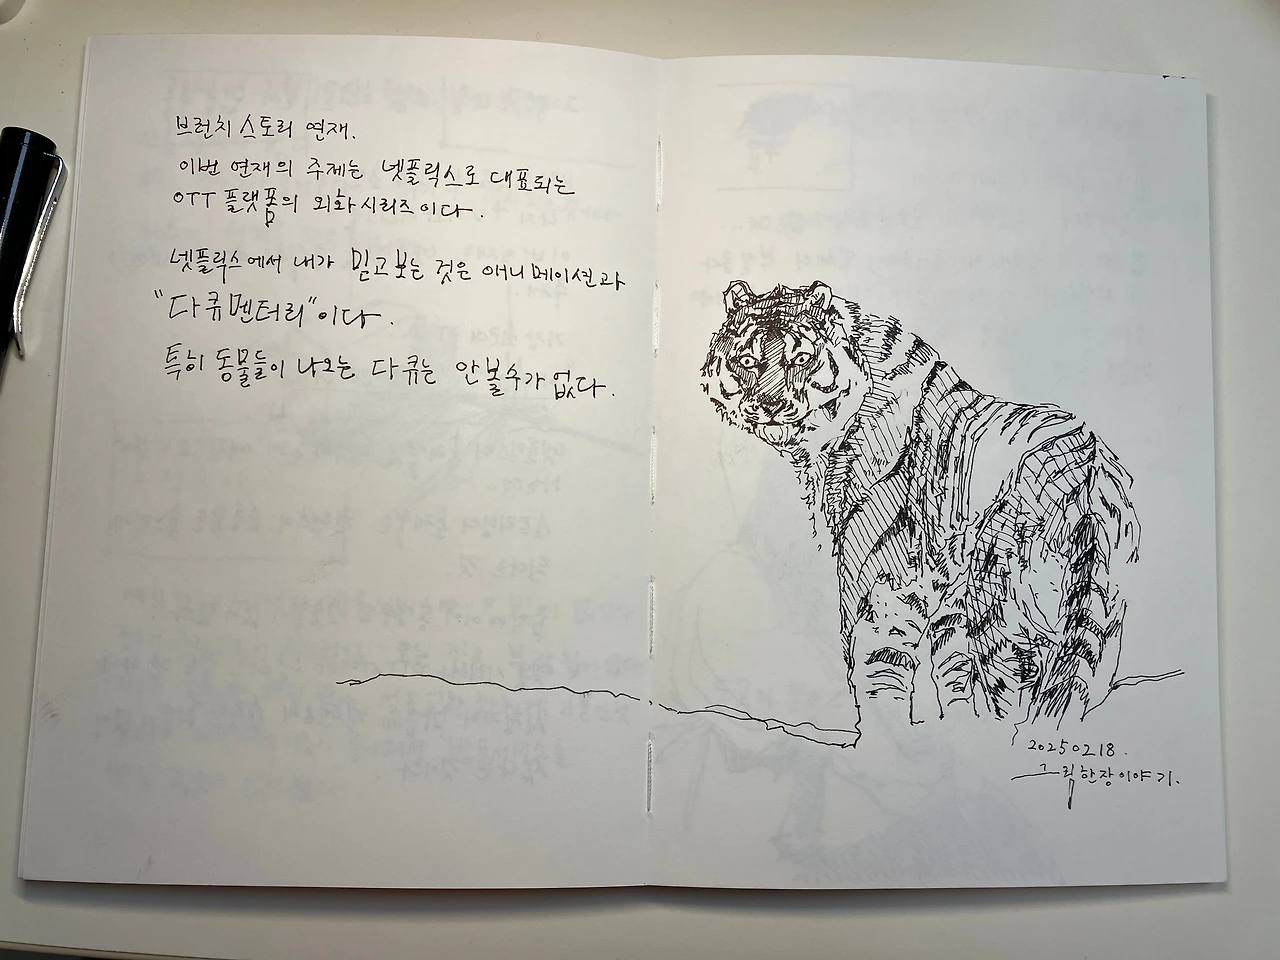 브런치 스토리 연재.
이번 연재의 주제는 넷플릭스로 대표되는
OTT 플랫폼의 외화시리즈이다.
넷플릭스에서 내가 믿고 보는 것은 애니메이션과
"다큐멘터리"이다.
특히 동물들이 나오는 다큐는 안볼수가 없다.
20250218.
그림한장이야기.